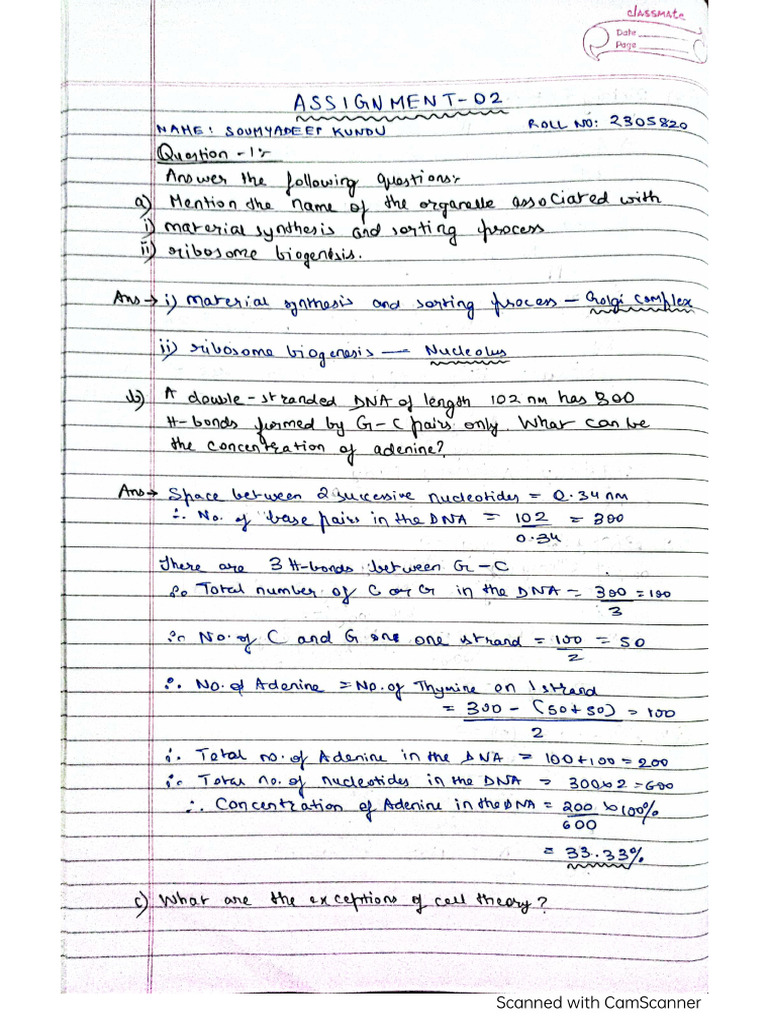 classmate
Date
Page
ASSIGNMENT-02
NAME: SOUMYADEEP KUNDU ROLL NO: 2305820
Question -1:-
Answer the following questions:-
a) Mention the name of the organelle associated with
i) material synthesis and sorting process
ii) ribosome biogenesis.
Ans → i) material synthesis and sorting process – Golgi complex
ii) ribosome biogenesis — Nucleolus
b) A double-stranded DNA of length 102 nm has 300
H-bonds formed by G-C pairs only. What can be
the concentration of adenine?
Ans → Space between 2 successive nucleotides = 0.34 nm
∴ No. of base pairs in the DNA = 102/0.34 = 300
There are 3 H-bonds between G-C
∴ Total number of C or G in the DNA = 300/3 = 100
∴ No. of C and G one one strand = 100/2 = 50
∴ No. of Adenine = No. of Thymine on 1 strand
= 300 - (50+50)/2 = 100
∴ Total no. of Adenine in the DNA = 100+100 = 200
∴ Total no. of nucleotides in the DNA = 300×2 = 600
∴ Concentration of Adenine in the DNA = 200/600 × 100%
= 33.33%
c) What are the exceptions of cell theory?
Scanned with CamScanner